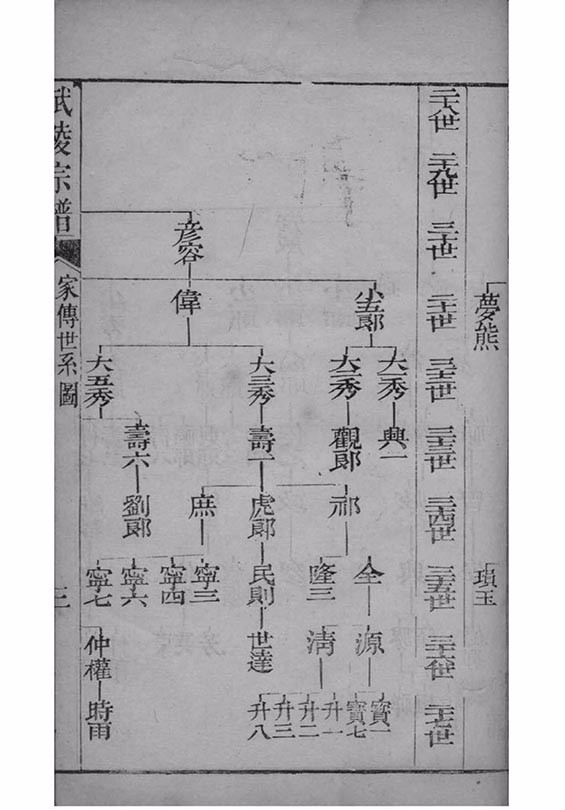 夢熊
瑣玉
二十八世 二十九世 三十世 三十一世 三十二世 三十三世 三十四世 三十五世 三十六世 三十七世
彥容
偉
小五郎
大五秀
大三秀
大二秀
大一秀
壽六
壽一
觀郎
興一
劉郎
庶
虎郎
祁
寧七
寧六
寧四
寧三
民則
隆三
全一
仲權
世達
淸
源
時雨
升八
升三
升二
升一
寶七
寶一
武陵宗譜
家傳世系圖
三